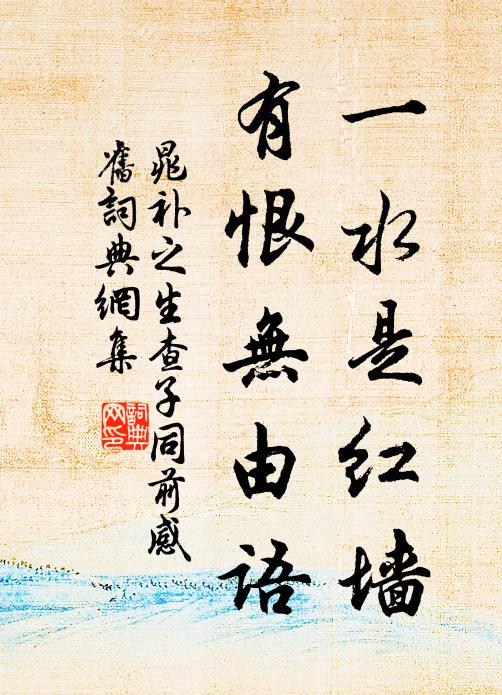 一水是红墙
有恨無由语
晁补之生查子同前感
舊詞典網集
詞典网印